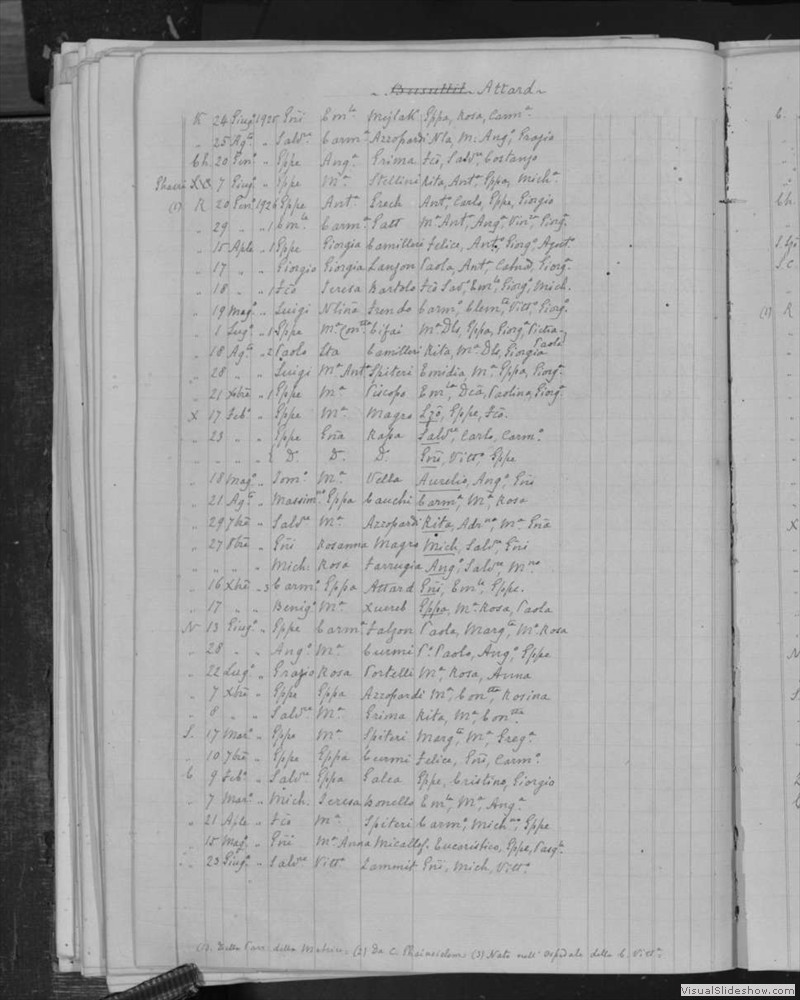 Busuttil Attard
R 24 Giug.º 1925 Gñi Em.la Mejlak Eppa, Rosa, Carm.ª
" 25 Ag.to " Salv.re Carm.ª Azzopardi Nla, M: Ang.ª Grazio
Ch. 20 Gen.º " Eppe Ang.ª Grima Fcõ, Salv.re Costanzo
7 Giug.º " Eppe M.ª Stellini Rita, Ant.ª Eppa, Mich.
(1) R 20 Gen.º 1926 Eppe Ant.ª Grech Ant.º Carlo, Eppe, Giorgio
" 29 " " 1 Em.le Carm.ª Galt M.ª Ant.ª Ang.ª Vin.za Giorg.
" 15 Aple " 1 Eppe Giorgia Camilleri Felice, Ant.º Giorg.ª Agost.º
" 17 " " Giorgio Giorgia Lanzon Paola, Ant.ª Giorg.
" 18 " " 1 Fcõ Teresa Bartolo Fcõ Sav.ª Em.la Giorg.ª Mich.
" 19 Mag.º " Luigi Frendo Carm.ª Clem.te Vitt.ª Giorg.ª
" 1 Lug.º " 1 Eppe M.ª Con.tta Cifai M.ª Dls, Eppa, Giorg.ª
" 18 Ag.to " 2 Paolo Camilleri Rita, M.ª Dls, Giorgia Paola
" 28 " " Luigi M.ª Ant.ª Spiteri Emidia M.ª Eppa, Giorg.ª
" 21 Xbre " 1 Eppe M.ª Piscopo Em.la, Dcã, Paolina, Giorg.ª
X 17 Feb.º " Eppe M.ª Magro Lzõ, Eppe, Fcõ.
" 23 " " Eppe Gña Rapa Salv.re, Carlo, Carm.º
" " " " 2 D. D. D. Gñi, Vitt.ª Eppe
" 18 Mag.º " Tom.º M.ª Vella Aurelio, Ang.º, Gñi
" 21 Ag.to " Massim.no Eppa Cauchi Carm.ª, M.ª Rosa
" 29 7bre " Salv.re M.ª Azzopardi Rita, Adr.na, M.ª Gña
" 27 8bre " Gñi Rosanna Magro Mich, Salv.re, Gñi
" " " " Mich. Rosa Farrugia Ang.º, Salv.re, M.no
" 16 Xbre " 3 Carm.º Eppa Attard Gñi, Em.le, Eppe.
" 17 " " Benig.º M.ª Xuereb Eppa, M.ª Rosa, Paola
N 13 Giug.º " Eppe Carm.ª Falzon Paola, Marg.ta, M.ª Rosa
" 28 " " Ang.º M.ª Curmi P.º Paolo, Ang.º, Eppe
" 22 Lug.º " Grazio Rosa Portelli M.ª, Rosa, Anna
" 7 Xbre " Eppe Eppa Azzopardi M.ª, Con.tta, Rosina
" 8 " " Salv.re M.ª Grima Rita, M.ª, Con.tta
S. 17 Mar.º " Eppe M.ª Spiteri Marg.ta M.ª Greg.ª
" 10 7bre " Eppe Eppa Curmi Felice, Gñi, Carm.º
C 9 Feb.º " Salv.re Eppa Galea Eppe, Cristino, Giorgio
" 7 Mar.º " Mich. Teresa Bonello Em.la, M.ª Ang.ª
" 21 Aple " Fcõ M.ª Spiteri Carm.ª, Mich.na, Eppe
" 15 Mag.º " Gñi M.ª Anna Micallef. Eucaristico, Eppe, Pasq.le
" 23 Giug.º " Salv.re Vitt.ª Zammit Gñi, Mich, Vitt.ª
(1) Della Parr. della Matrice (2) Da C. (3) Nato nell' Ospedale della C. Vitt.ª
VisualSlideshow.com